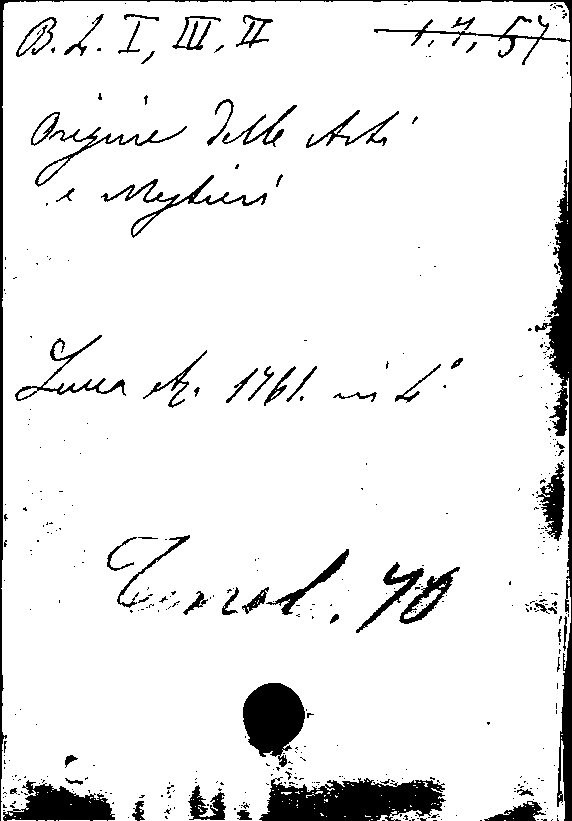 B. L. I, III, II 1. 7, 57
Origine delle Arti
e Mestieri
Lucca etz. 1761. in 4°
70